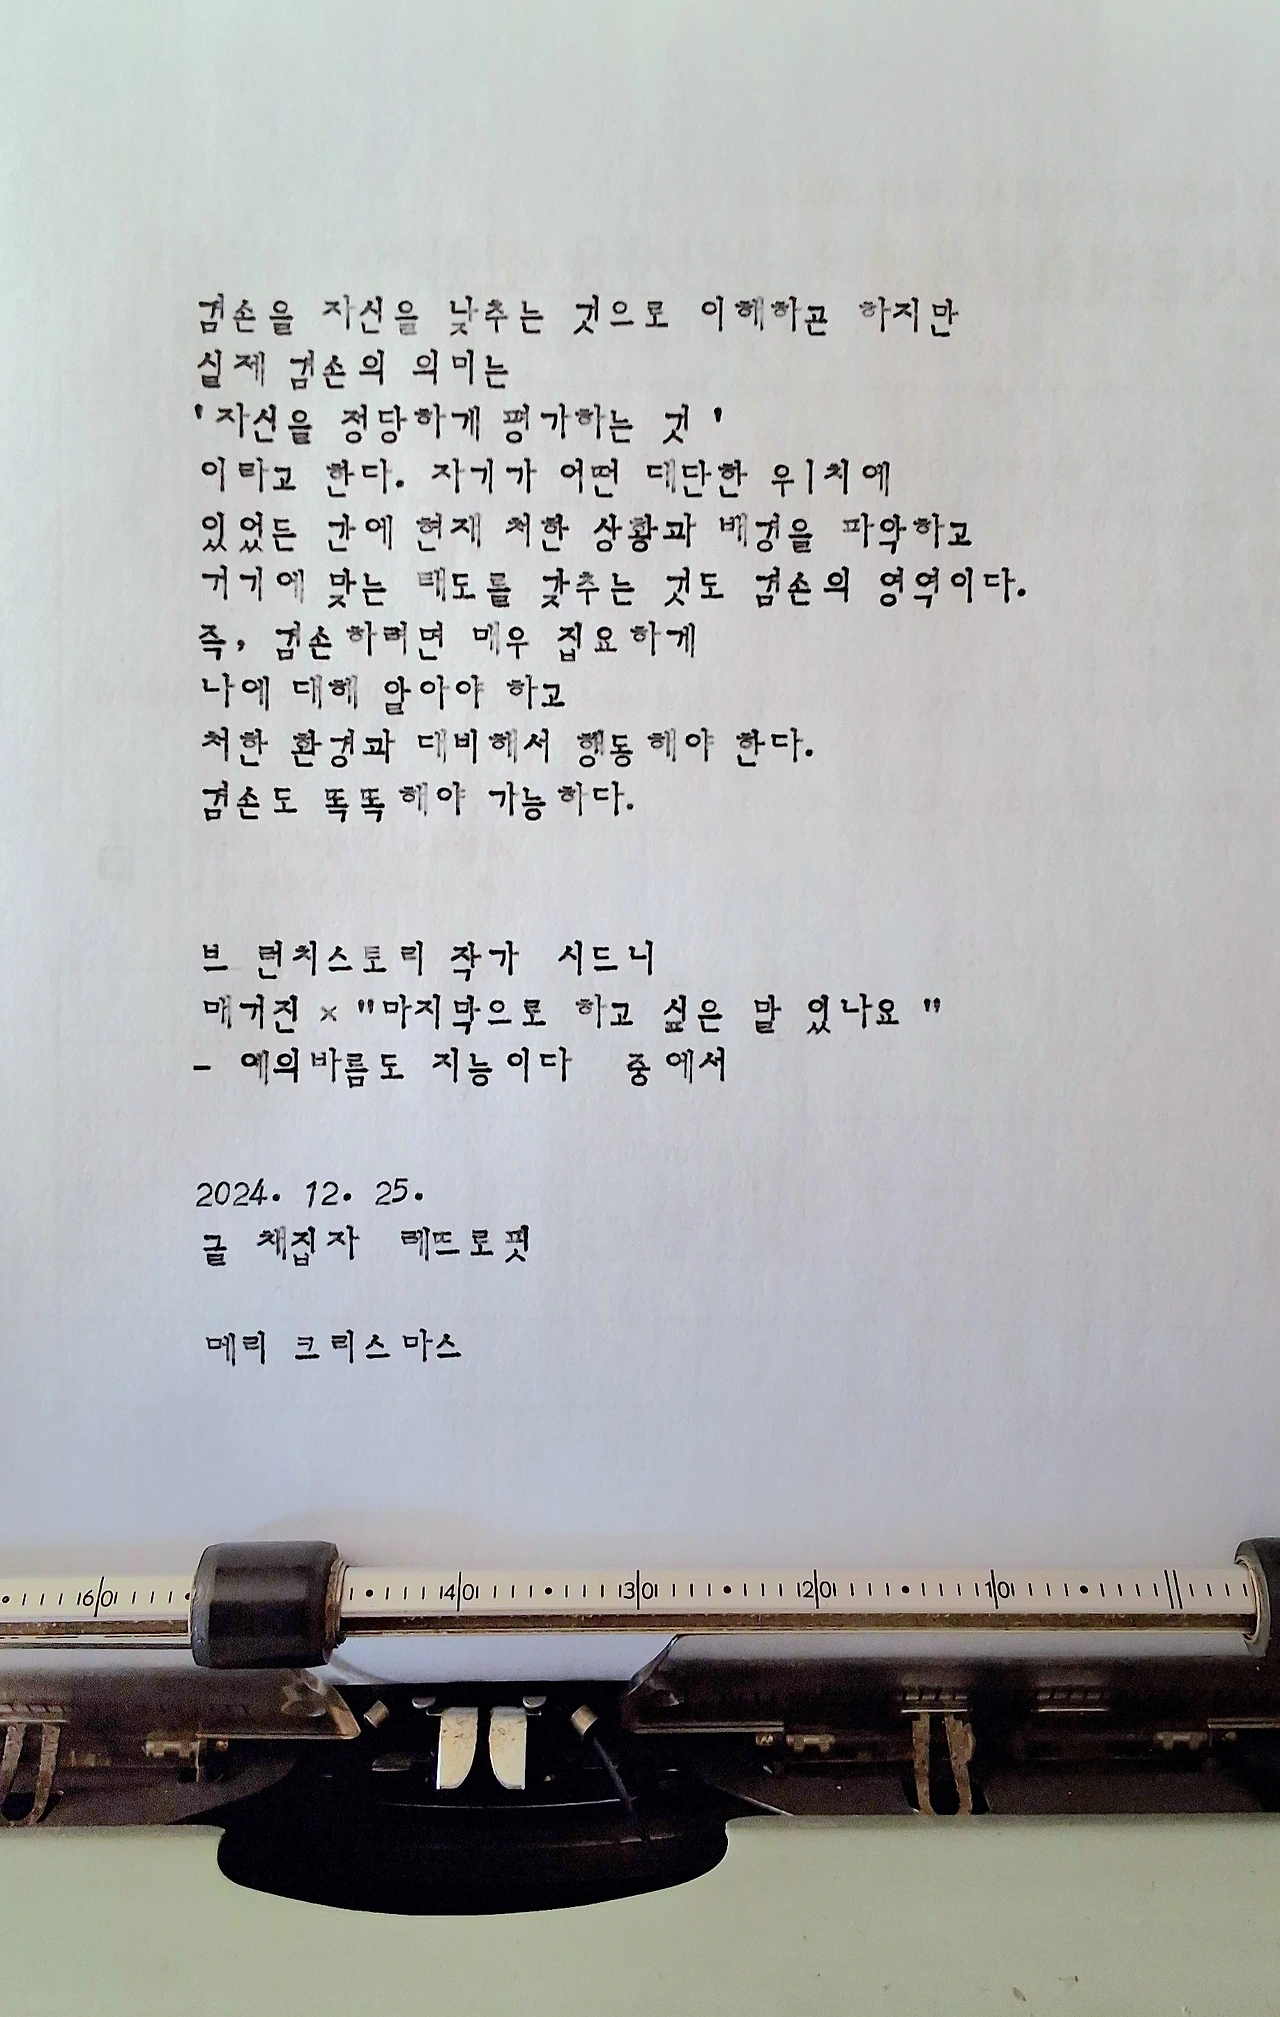 겸손을 자신을 낮추는 것으로 이해하곤 하지만
실제 겸손의 의미는
'자신을 정당하게 평가하는 것 '
이라고 한다. 자기가 어떤 대단한 위치에
있었든 간에 현재 처한 상황과 배경을 파악하고
거기에 맞는 태도를 갖추는 것도 겸손의 영역이다.
즉, 겸손하려면 매우 집요하게
나에 대해 알아야 하고
처한 환경과 대비해서 행동해야 한다.
겸손도 똑똑해야 가능하다.
브 런치스토리 작가 시드니
매거진 × "마지막으로 하고 싶은 말 있나요 "
- 예의바름도 지능이다 중에서
2024. 12. 25.
글 채집자 레뜨로핏
메리 크리스마스
160 140 130 120 10